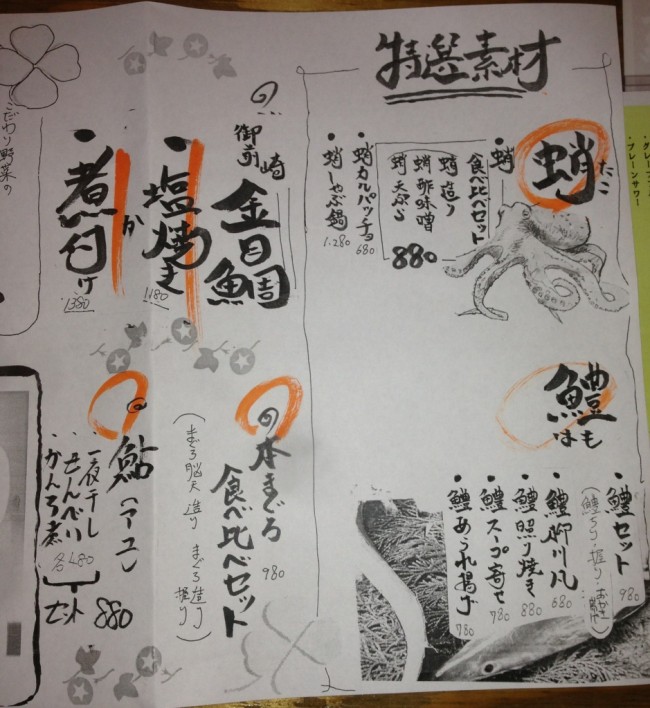 特選素材
蛸
たこ
・蛸食べ比べセット
蛸造り
蛸酢味噌
蛸天ぷら
880
・蛸カルパッチョ
680
・蛸しゃぶ鍋
1.280
鱧
はも
・鱧セット
980
・鱧柳川風
680
・鱧照り焼き
880
・鱧スープ寄せ
780
・鱧あられ揚げ
780
御前崎
金目鯛
・塩焼き
1180
か
・煮付け
1380
本まぐろ
食べ比べセット
980
(まぐろ脳天造り まぐろ造り 握り)
鮎(アユ)
・一夜干し
・せんべい
・かんろ煮
各480
セット 880
こだわり野菜の
プレーンサワー